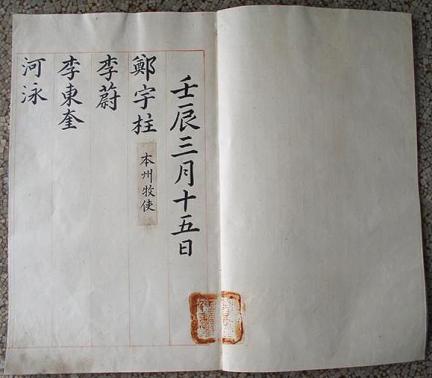 壬辰三月十五日
鄭宇柱 本州牧使
李蔚
李東奎
河泳